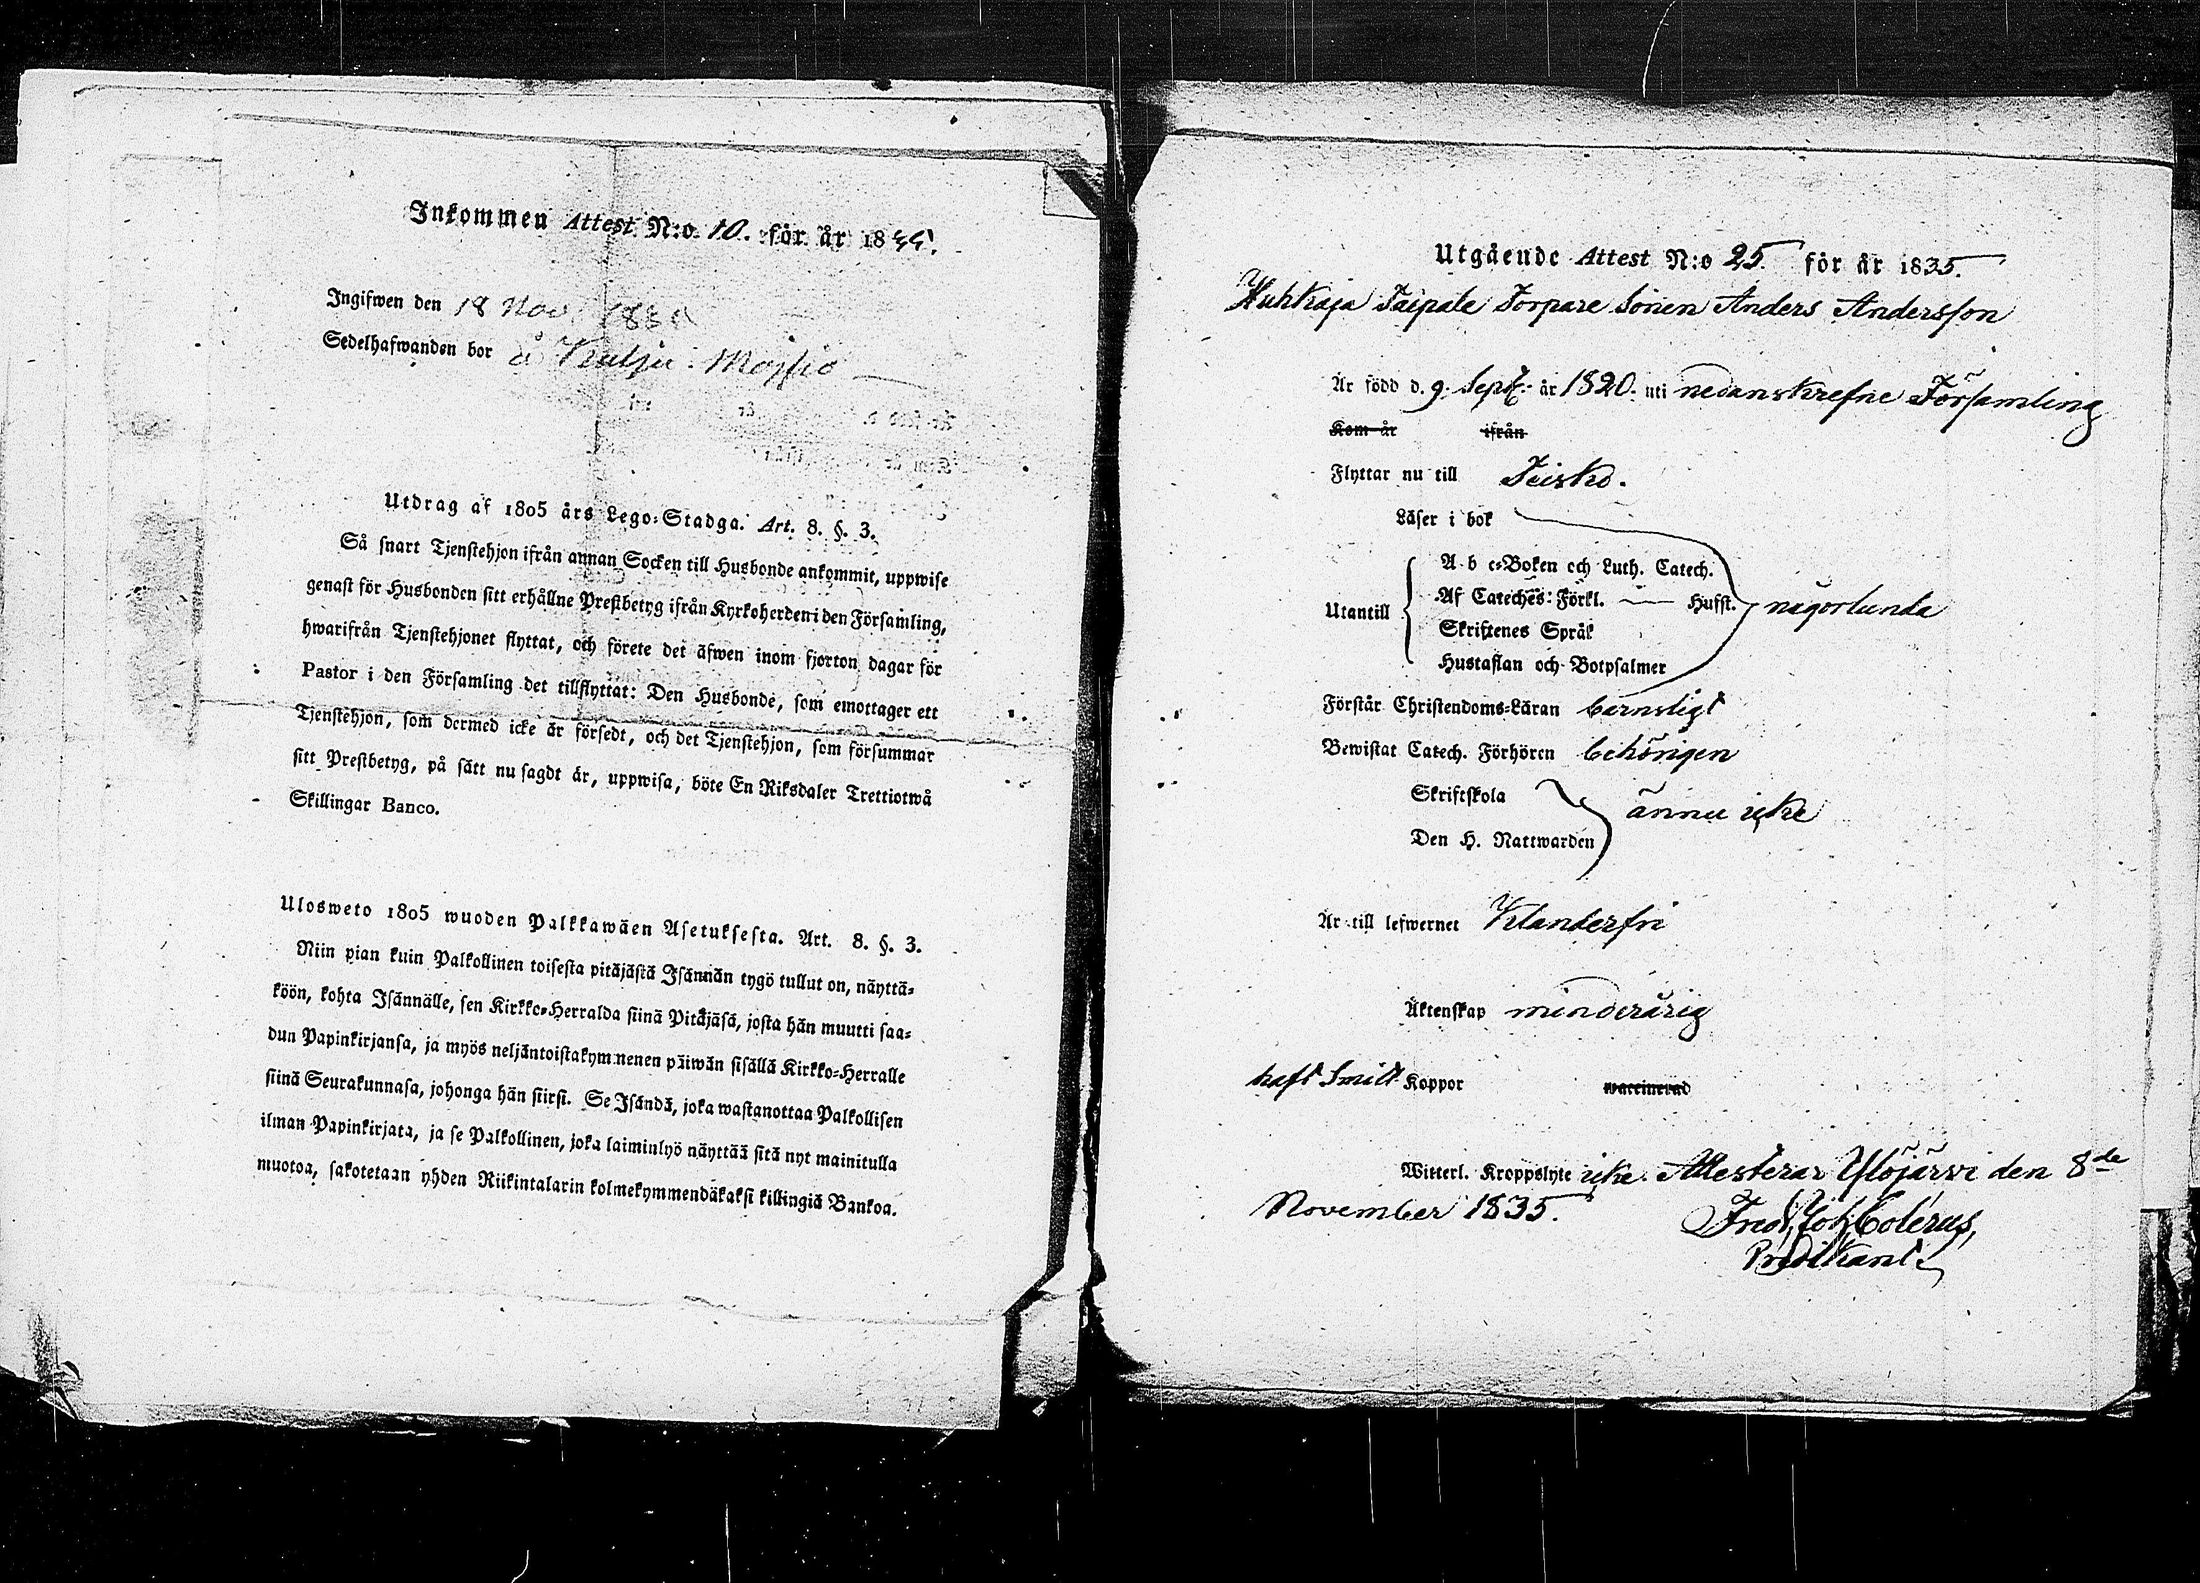 Inkommen Attest N:o 10. för år 1835.
Ingifwen den 18 Nov 1835
Sedelhafwanden bor å
Utdrag af 1805 års Lego-Stadga. Art. 8. §. 3.
Så snart Tjenstehjon ifrån annan Socken till Husbonde ankommit, uppwise
genast för Husbonden sitt erhållne Prestbetyg ifrån Kyrkoherden i den Församling,
hwarifrån Tjenstehjonet flyttat, och förete det äfwen inom fjorton dagar för
Pastor i den Församling det tillflyttat: Den Husbonde, som emottager ett
Tjenstehjon, som dermed icke är försedt, och det Tjenstehjon, som försummar
sitt Prestbetyg, på sätt nu sagdt är, uppwisa, böte En Riksdaler Trettiotwå
Skillingar Banco.
Ulosweto 1805 wuoden Palkkawäen Asetuksesta. Art. 8. §. 3.
Niin pian kuin Palkollinen toisesta pitäjästä Isännän tygö tullut on, näyttä-
köön, kohta Isännälle, sen Kirkko-Herralda siinä Pitäjäsä, josta hän muutti saa-
dun Papinkirjansa, ja myös neljäntoistakymmenen päiwän sisällä Kirkko-Herralle
siinä Seurakunnasa, johonga hän siirsi. Se Isändä, joka wastanottaa Palkollisen
ilman Papinkirjata, ja se Palkollinen, joka laiminlyö näyttää sitä nyt mainitulla
muotoa, sakotetaan yhden Riikintalarin kolmekymmendäkaksi killingiä Bankoa.
Utgående Attest N:o 25. för år 1835.
Kuhkaja Taipale Torpare Sonen Anders Andersson
Är född d. 9. Sept: år 1820. uti nedanskrefne Församling
Kom år ifrån
Flyttar nu till Teisko.
Läser i bok
A b c-Boken och Luth. Catech.
Utantill Af Cateches: Förkl. Hufst. någorlunda
Skriftenes Språk
Hustaflan och Botpsalmer
Förstår Christendoms-Läran barnsligt
Bewistat Catech. Förhören behörigen
Skriftskola ännu icke
Den H. Nattwarden
Är till lefwernet Klanderfri
Äktenskap minderårig
haft Smitt Koppor waccinerad
Witterl. Kroppslyte icke. Attesterar Ylöjärvi den 8de
November 1835. Fred. Joh. Colerus,
Predikant.